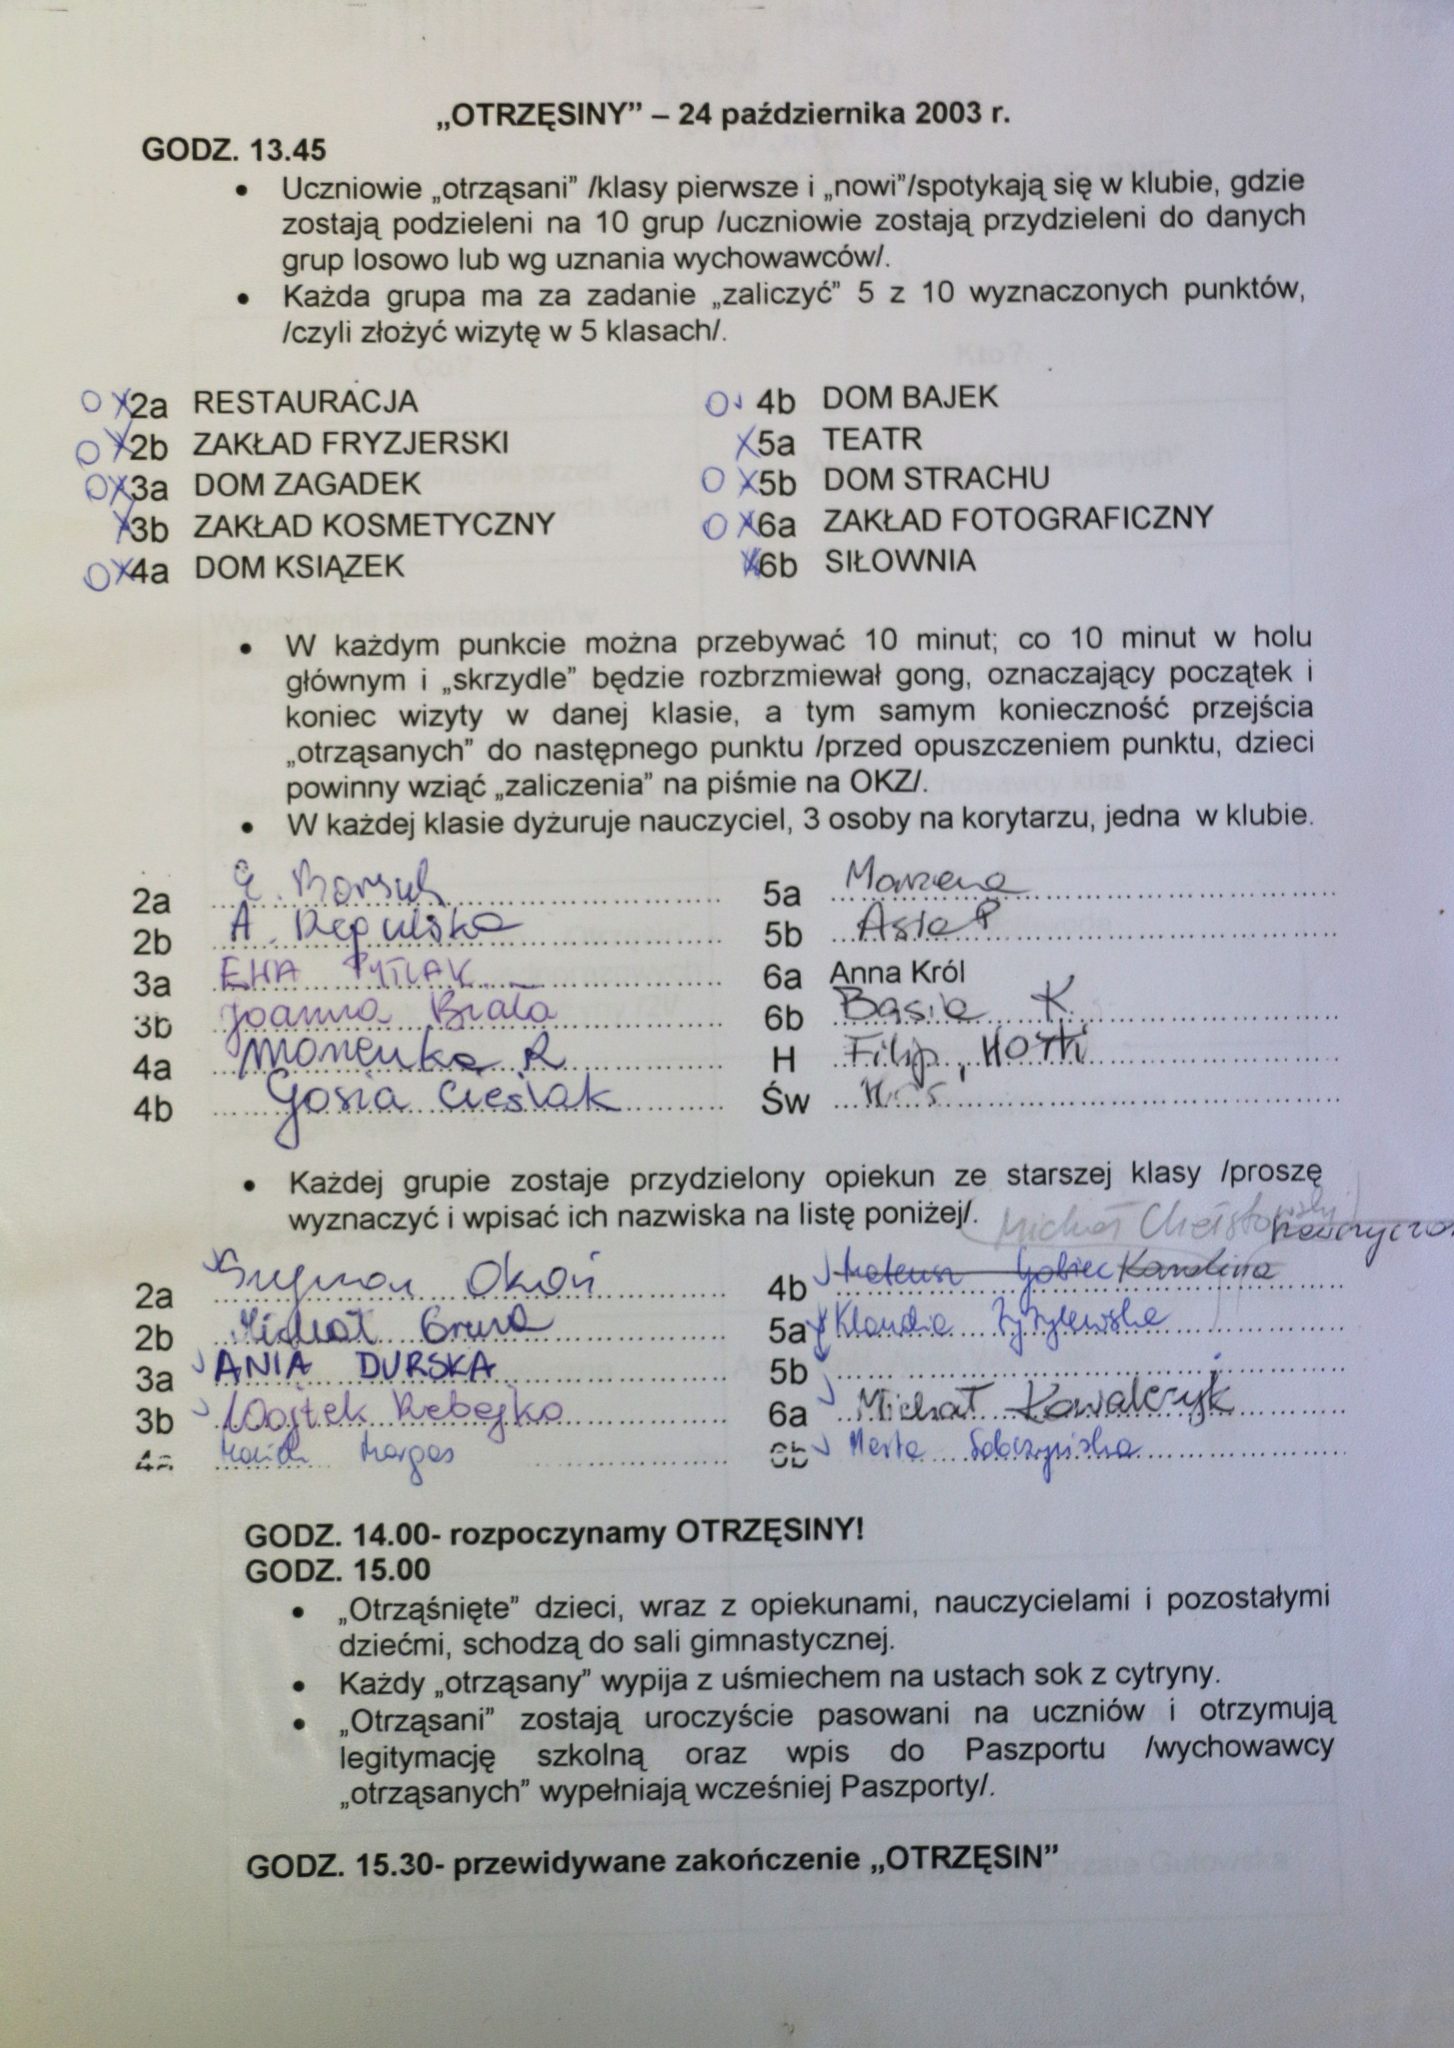 „OTRZĘSINY” – 24 października 2003 r.
GODZ. 13.45
• Uczniowie „otrząsani” /klasy pierwsze i „nowi”/spotykają się w klubie, gdzie
zostają podzieleni na 10 grup /uczniowie zostają przydzieleni do danych
grup losowo lub wg uznania wychowawców/.
• Każda grupa ma za zadanie „zaliczyć” 5 z 10 wyznaczonych punktów,
/czyli złożyć wizytę w 5 klasach/.
2a RESTAURACJA
2b ZAKŁAD FRYZJERSKI
3a DOM ZAGADEK
3b ZAKŁAD KOSMETYCZNY
4a DOM KSIĄZEK
4b DOM BAJEK
5a TEATR
5b DOM STRACHU
6a ZAKŁAD FOTOGRAFICZNY
6b SIŁOWNIA
• W każdym punkcie można przebywać 10 minut; co 10 minut w holu
głównym i „skrzydle” będzie rozbrzmiewał gong, oznaczający początek i
koniec wizyty w danej klasie, a tym samym konieczność przejścia
„otrząsanych” do następnego punktu /przed opuszczeniem punktu, dzieci
powinny wziąć „zaliczenia” na piśmie na OKZ/.
• W każdej klasie dyżuruje nauczyciel, 3 osoby na korytarzu, jedna w klubie.
2a Borsuk
2b A. Regulska
3a EHA PYTLAK
3b Joanna Biała
4a R
4b Gosia Cieślak
5a Marzena
5b Asia P
6a Anna Król
6b Basia K
H Filip,
Św
• Każdej grupie zostaje przydzielony opiekun ze starszej klasy /proszę
wyznaczyć i wpisać ich nazwiska na listę poniżej/.
Michał
2a Szymon Okoń
2b Michał
3a ANIA DURSKA
3b Wojtek Rebejko
4a
4b Mateusz Karolina
5a Klaudia
5b
6a Michał Kowalczyk
6b Marta
GODZ. 14.00- rozpoczynamy OTRZĘSINY!
GODZ. 15.00
• „Otrząśnięte” dzieci, wraz z opiekunami, nauczycielami i pozostałymi
dziećmi, schodzą do sali gimnastycznej.
• Każdy „otrząsany” wypija z uśmiechem na ustach sok z cytryny.
• „Otrząsani” zostają uroczyście pasowani na uczniów i otrzymują
legitymację szkolną oraz wpis do Paszportu /wychowawcy
„otrząsanych” wypełniają wcześniej Paszporty/.
GODZ. 15.30- przewidywane zakończenie „OTRZĘSIN”